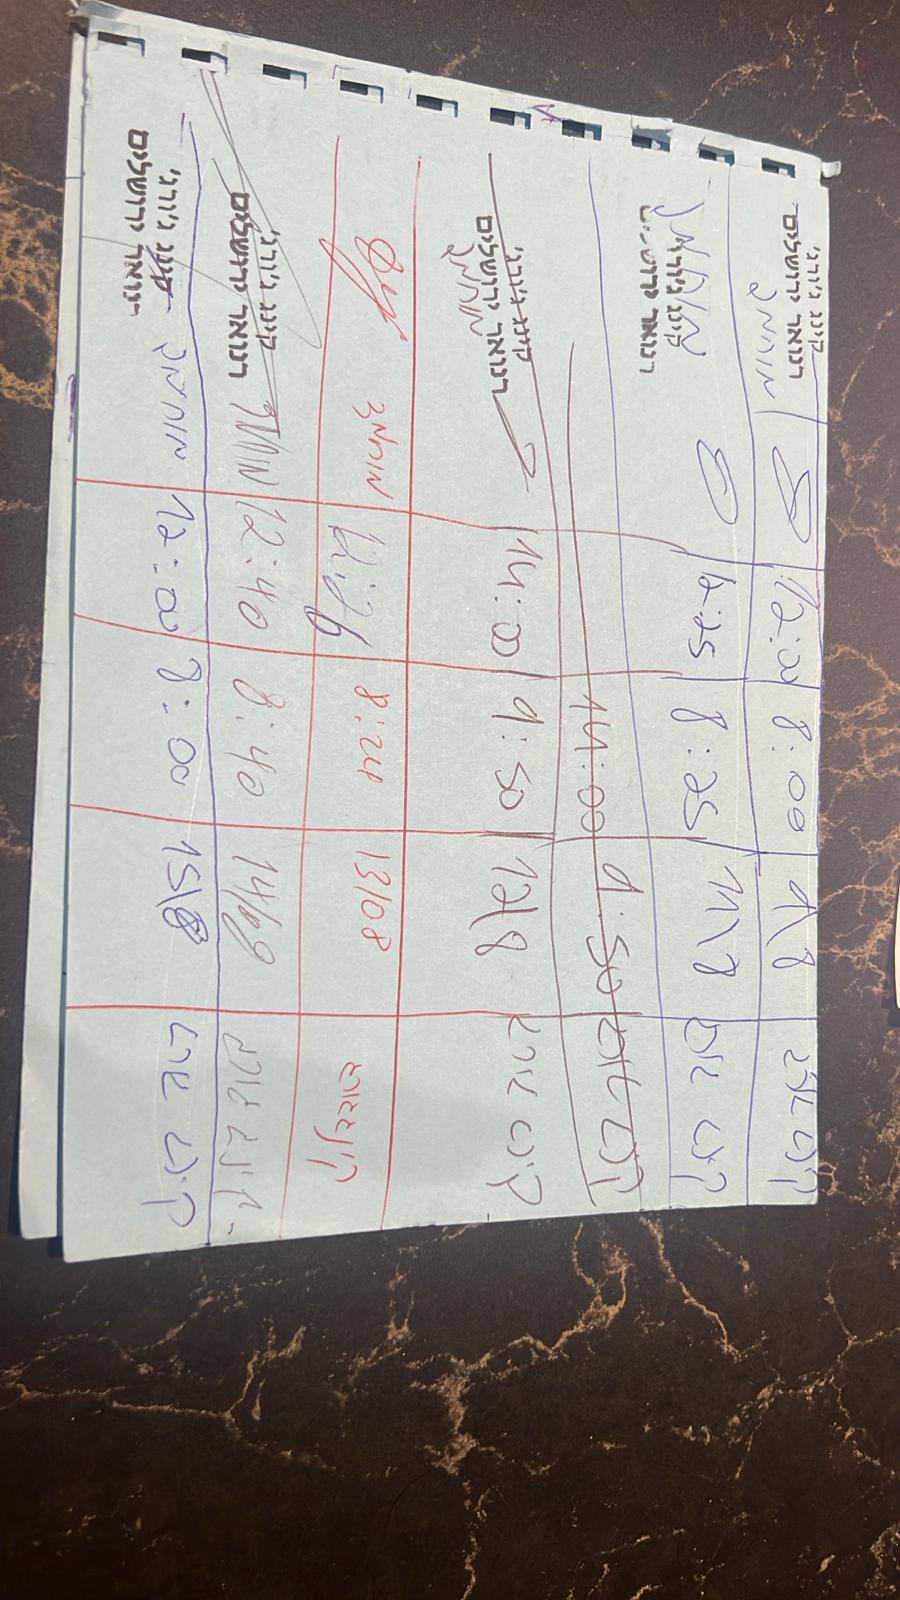 קינג גורג 9\8 8:00 12:00 קינג ג'ורג' רנואר ירושלים
מוחמד
קינג גורג 11\8 8:25 12:25 מוחמד
קינג ג'ורג' רנואר ירושלים
קינג גורג 9:50 14:00
קינג גורג 12\8 9:50 14:00 קינג ג'ורג' רנואר ירושלים
מוחמד
קינג גורג 13/08 8:24 12:26 מוחמד
קינג גורג 14/08 8:40 12:40 מוחמד קינג ג'ורג' רנואר ירושלים
קינג גורג 15\8 8:00 12:00 מוחמד קינג ג'ורג' רנואר ירושלים